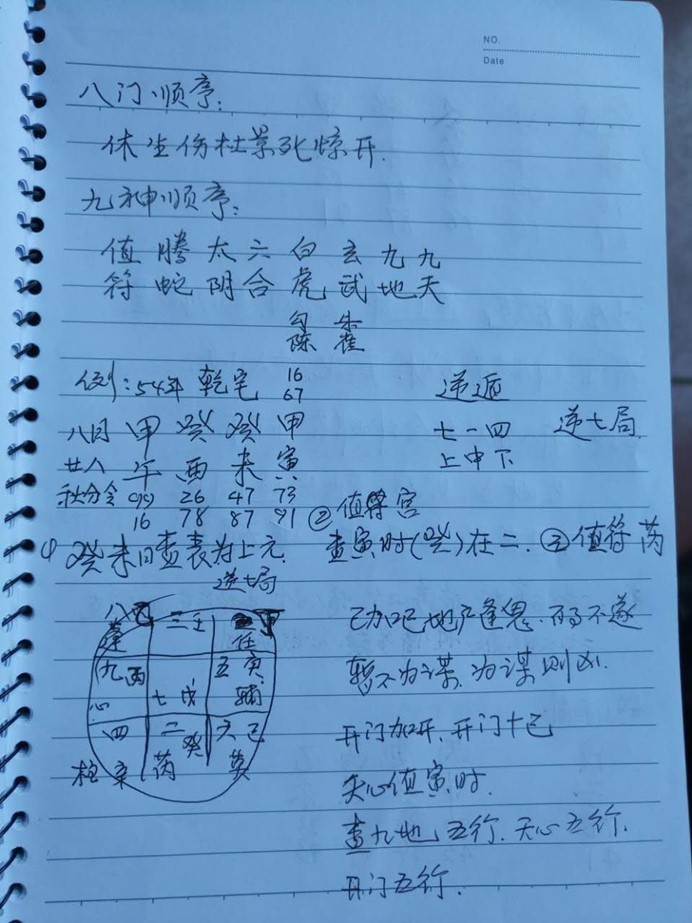 NO.
Date
八门顺序：
休生伤杜景死惊开.
九神顺序：
值 腾 太 六 白 玄 九 九
符 蛇 阴 合 虎 武 地 天
勾 朱
陈 雀
例：54年 乾宅 16 逆遁
67
八月 甲 癸 癸 甲 七一四 逆七局
廿八 午 酉 未 寅 上中下
秋分令 99 26 47 73
16 78 87 91 ②值 宫
① 癸未日查表为上元. 查寅时(癸)在二. ③值符芮
逆七局
八 三壬 甲
蓬 任
九丙 五
心 七戊 辅
四 二癸 六己
柱 芮 英
己加己地户逢鬼. 不遂
暂不为谋, 为谋则凶.
开门加开. 开门十己
天心值寅时.
查九地五行. 天心五行.
开门五行.